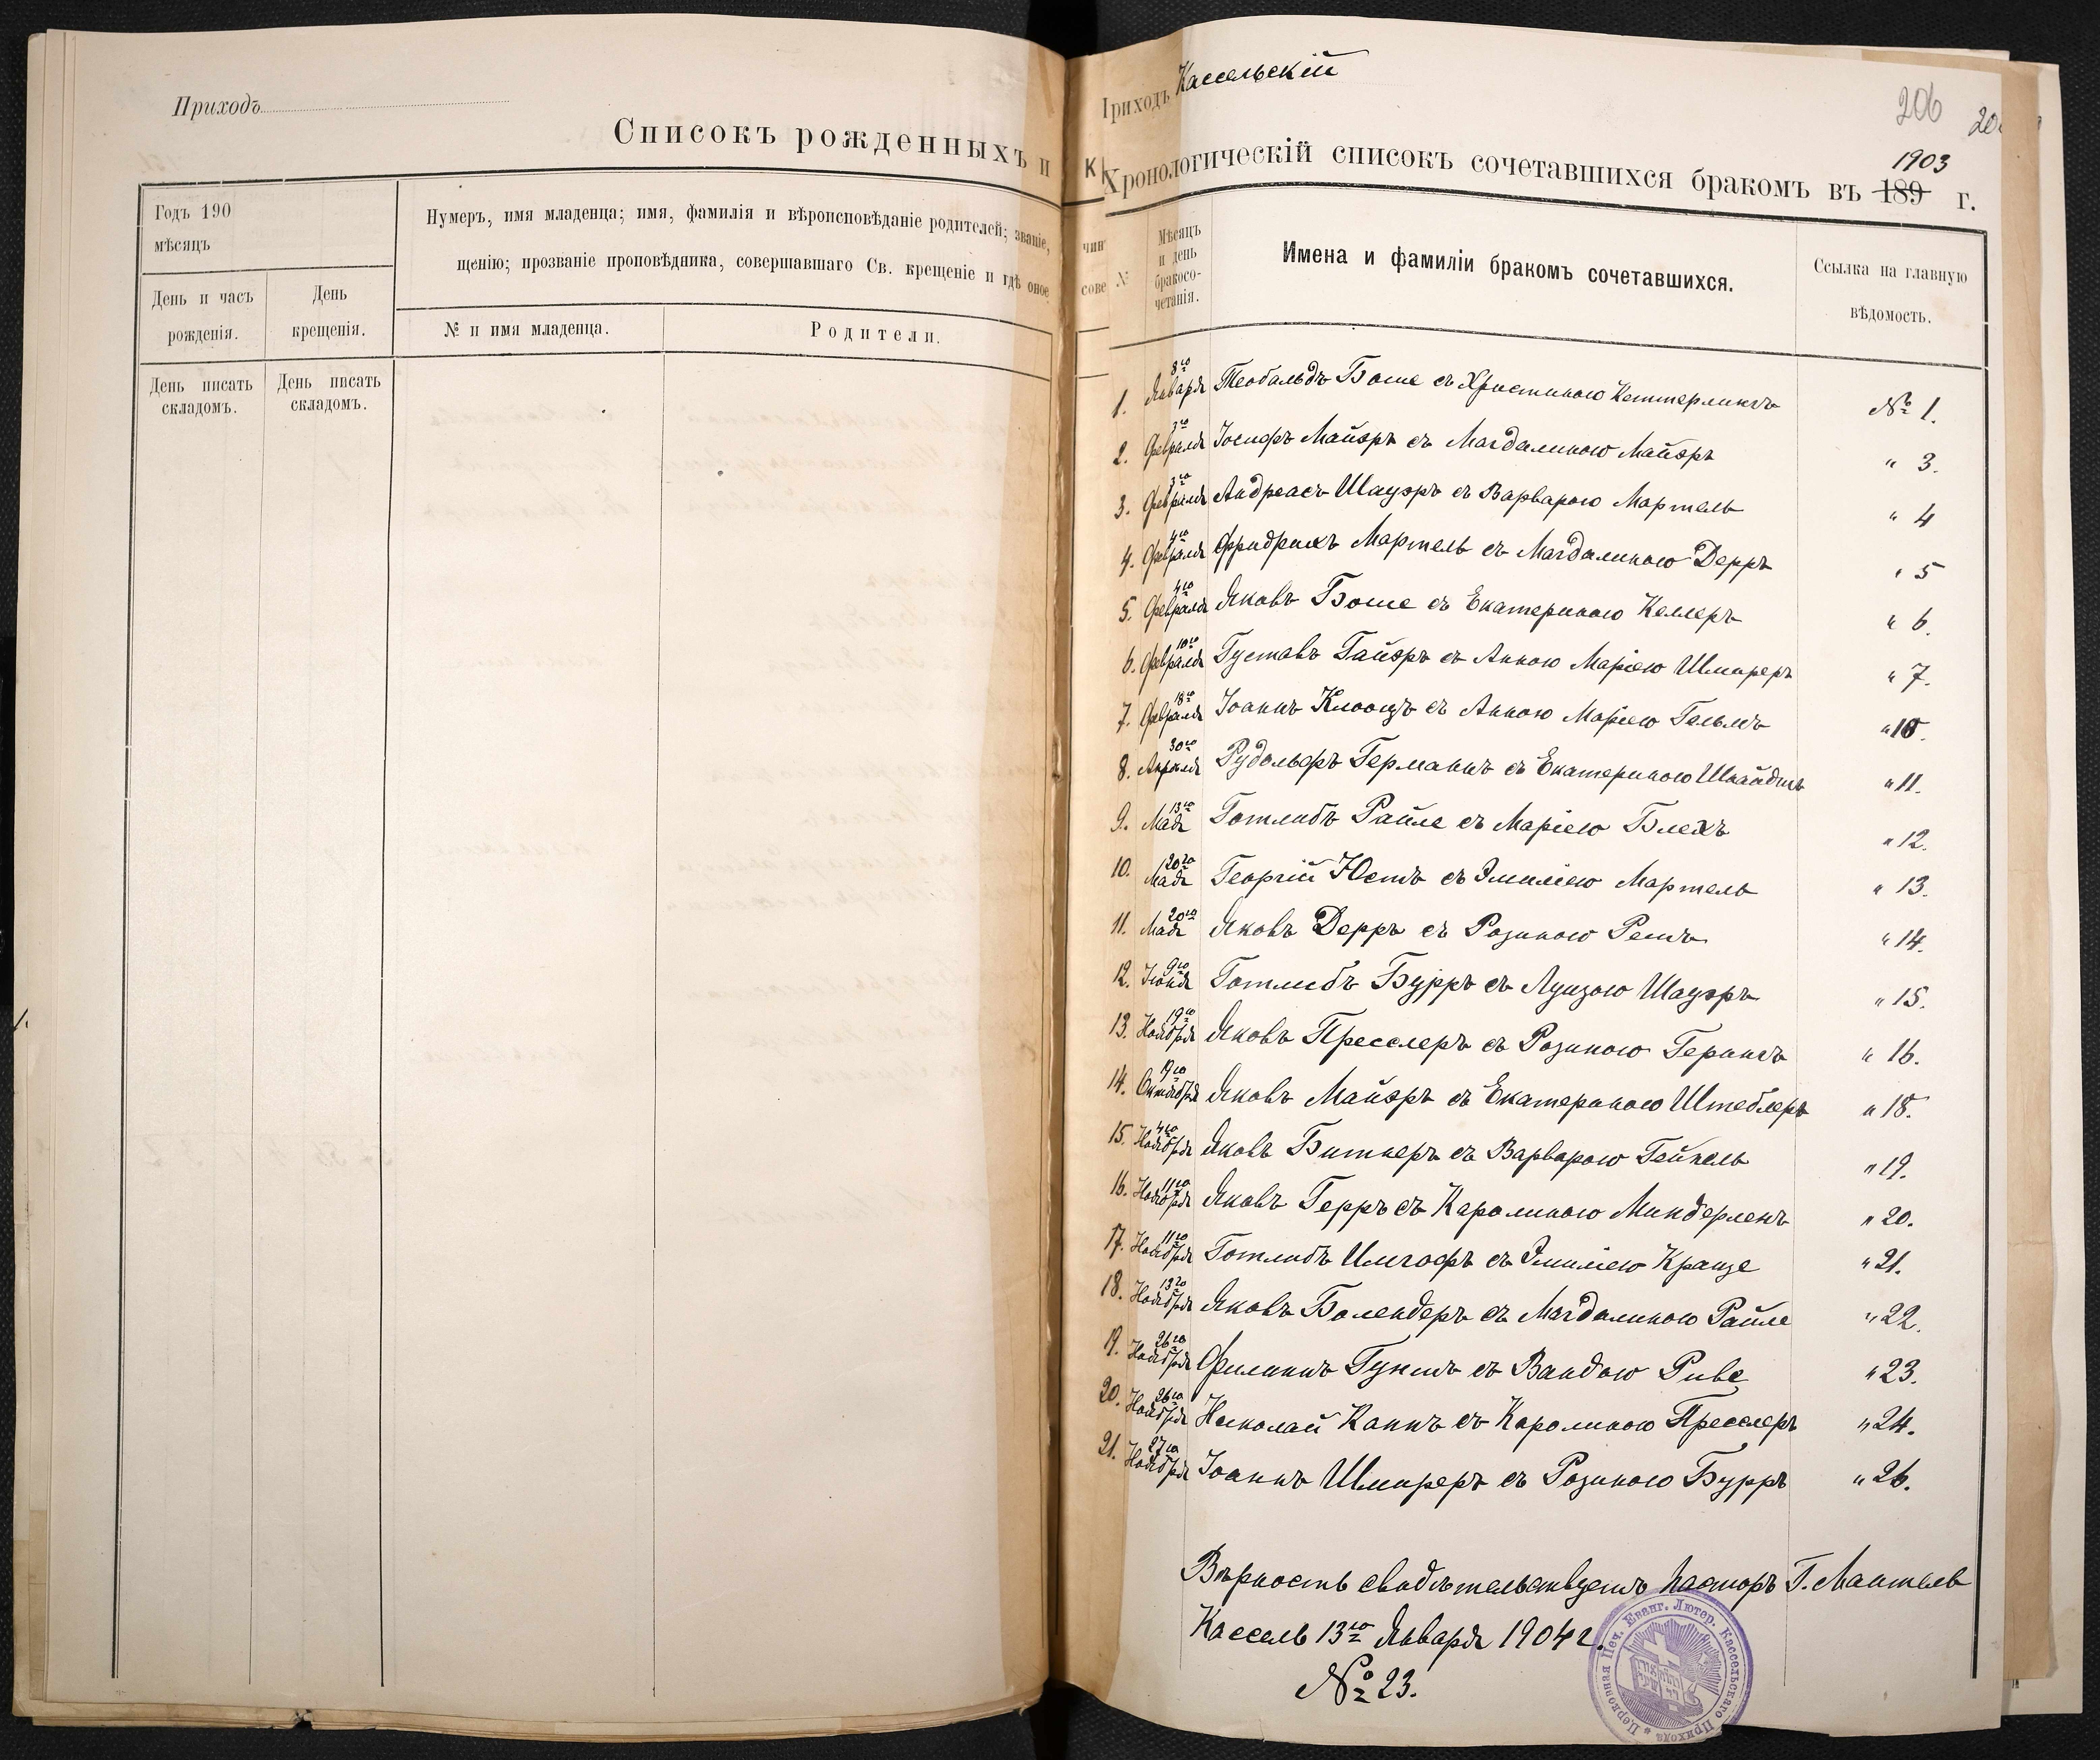 Приходъ
Списокъ рожденныхъ и
Годъ 190
мѣсяцъ
Нумеръ, имя младенца; имя, фамилія и вѣроисповѣданіе родителей; званіе,
щенію; прозваніе проповѣдника, совершавшаго Св. крещеніе и гдѣ оное
День и часъ
рожденія.
День
крещенія.
№ и имя младенца.
Родители.
День писать
складомъ.
День писать
складомъ.
К
чин
сове
Приходъ Кассельскій
206
1903
Хронологическій списокъ сочетавшихся бракомъ въ 189 г.
№
Мѣсяцъ
и день
бракосо-
четанія.
Имена и фамиліи бракомъ сочетавшихся.
Ссылка на главную
вѣдомость.
1. 8го Января Теобальдъ Боше съ Христиною Кеттерлингъ № 1.
2. 3го Февраля Іосифъ Майэръ съ Магдалиною Майэръ " 3.
3. 3го Февраля Андреасъ Шауэръ съ Варварою Мартель " 4
4. 4го Февраля Фридрихъ Мартель съ Магдалиною Дерръ " 5
5. 4го Февраля Яковъ Боше съ Екатериною Келлеръ " 6.
6. 10го Февраля Густавъ Гайэръ съ Анною Маріею Шмиреръ " 7.
7. 18го Февраля Іоаннъ Клооцъ съ Анною Маріею Гельмъ " 10.
8. 30го Апрѣля Рудольфъ Германнъ съ Екатериною Шнайдеръ " 11.
9. 13го Мая Готлибъ Райле съ Маріею Блехъ " 12.
10. 20го Мая Георгій Юстъ съ Эмиліею Мартель " 13.
11. 20го Мая Яковъ Дерръ съ Розиною Решъ " 14.
12. 9го Іюня Готлибъ Бурръ съ Луизою Шауэръ " 15.
13. 19го Ноября Яковъ Пресслеръ съ Розиною Герингъ " 16.
14. 19го Октября Яковъ Майэръ съ Екатериною Штеблеръ " 18.
15. 4го Ноября Яковъ Битнеръ съ Варварою Гейнель " 19.
16. 11го Ноября Яковъ Герръ съ Каролиною Миндерленъ " 20.
17. 11го Ноября Готлибъ Имгофъ съ Эмиліею Кранце " 21.
18. 13го Ноября Яковъ Болендеръ съ Магдалиною Райле " 22.
19. 26го Ноября Филиппъ Гуншъ съ Вандою Риве " 23.
20. 26го Ноября Николай Каннъ съ Каролиною Пресслеръ " 24.
21. 27го Ноября Іоаннъ Шмиреръ съ Розиною Бурръ " 26.
Вѣрность свидѣтельствуетъ Пасторъ Г. Мантель
Кассель 13го Января 1904 г.
№ 23.
Церковная Печ. Еванг. Лютер. Кассельскаго Прихода